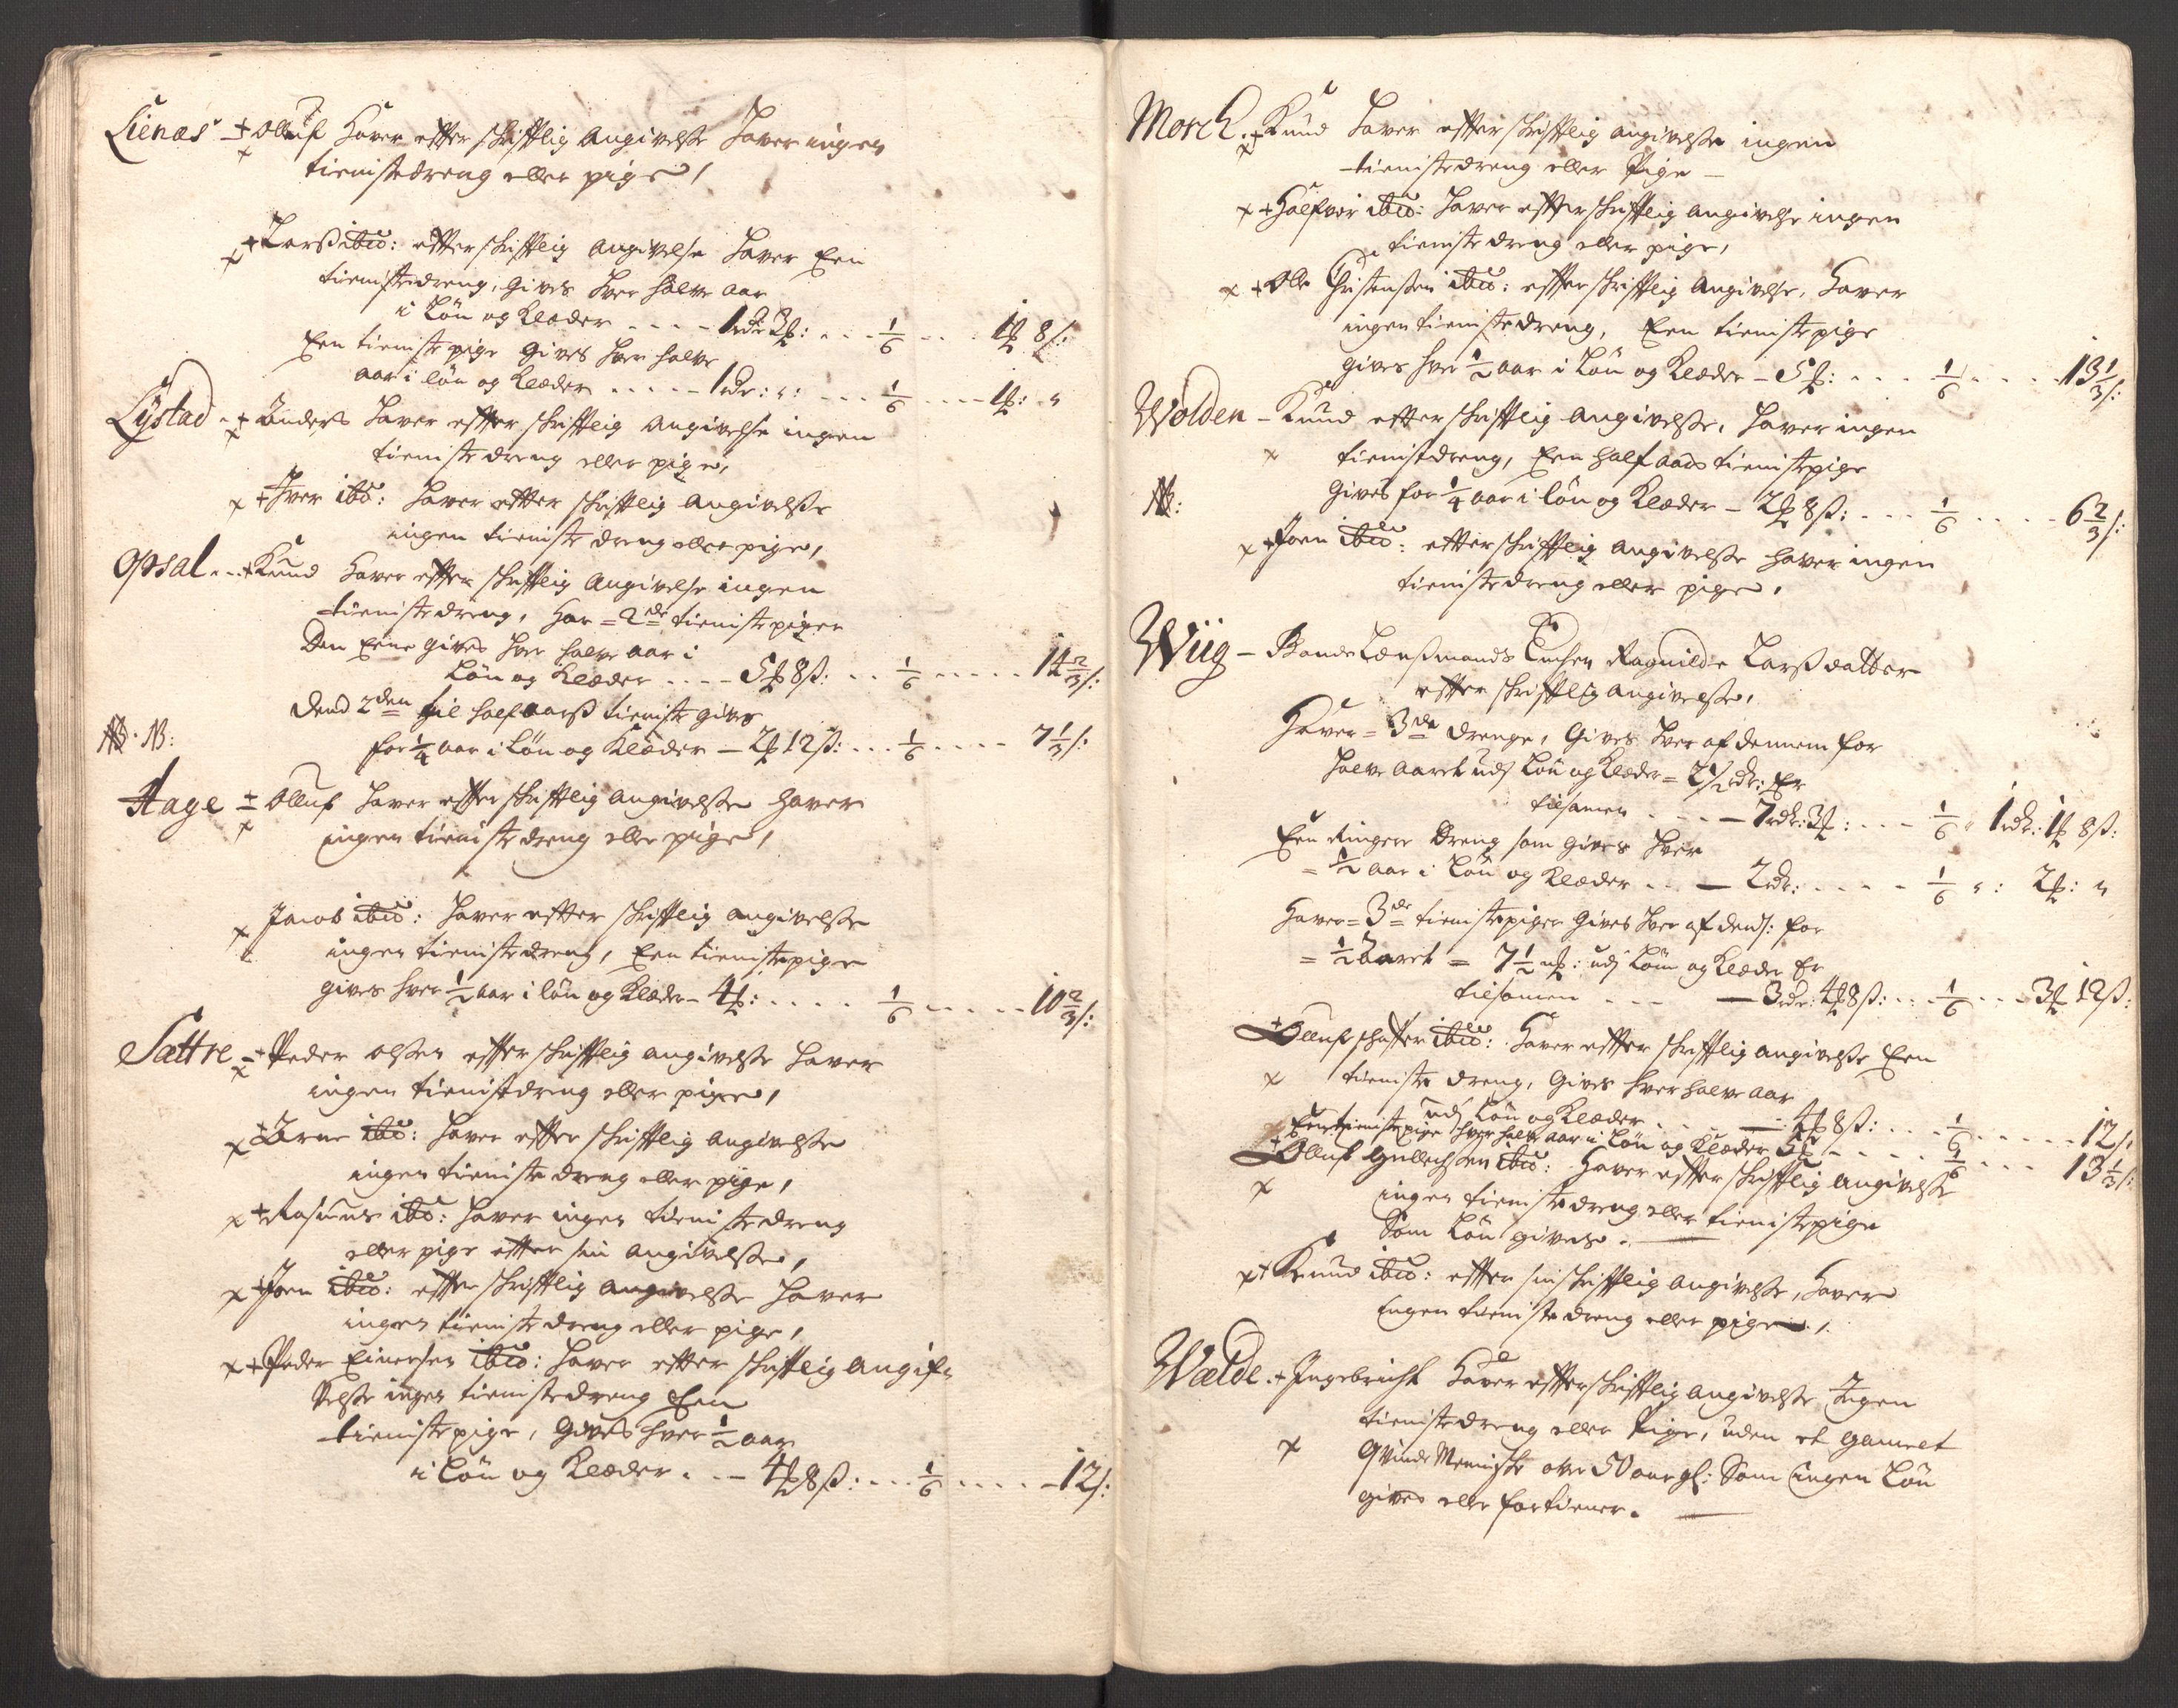 Lienæs ‐ + Olluf Haver efter schrifftlig Angivelse Haver ingen
x
tienistedreng eller pige,
+ Larss ibid: efter schrifftlig Angivelse Haver Een
x
tienistedreng, gives hver halve aar
i Løn og Klæder - - - - 1 rdr 3 ℔: - - - 1/6 - - - 1 ℔ 8 s:
Een tieniste pige gives hver halve
aar i løn og Klæder - - - - - 1 rdr: „: - - - 1/6 - - - - 1 ℔: „
Lystad - + Anders Haver efter schrifftlig Angivelse ingen
x
tieniste dreng eller pige,
x + Iver ibid: Haver efter schrifftlig Angivelse
ingen tieniste dreng eller pige,
Opsal - - + Knud Haver efter schrifftlig Angivelse ingen
tienistedreng, Har = 2de tienistepiger
Den Eene gives hver halve aar i
Løn og Klæder - - - - 5 ℔ 8 ss: - - 1/6 - - - - - 14 2/3 s:
Dend 2den til halfaarss tieniste gives
NB. NB:
for 1/4 aar i Løn og Klæder - 2 ℔ 12 ss: - - - 1/6 - - - - 7 1/3 s:
Hage + Olluf Haver efter schrifftlig Angivelse Haver
x
ingen tieniste dreng eller pige,
x Jacob ibid: Haver efter schrifftlig angivelse
ingen tienistedreng, Een tienistepige
gives hver 1/2 aar i løn og Klæder - 4 ℔: - - - - 1/6 - - - - - 10 2/3 s:
Sættre - + Peder Olssen efter schrifftlig angivelse Haver
x
ingen tienistdreng eller pige,
x + Arne ibid: Haver efter schrifftlig Angivelse
ingen tieniste dreng eller pige,
x + Rasmus ibid: Haver ingen tienistedreng
eller pige efter sin angivelse,
x + Joen ibid: efter schrifftlig angivelse Haver
ingen tieniste dreng eller pige,
x + Peder Einersen ibid: Haver efter schrifftlig Angif-
velse ingen tienistedreng Een
tienistepige, gives hver 1/2 aar
i Løn og Klæder. - - 4 ℔ 8 ss: - - - 1/6 - - - - - 12 s:
Morch - + Knud Haver efter schrifftlig angivelse ingen
x
tienistedreng eller Pige -
x + Halfvor ibid: Haver efter schrifftlig angivelse ingen
tieniste dreng eller pige,
x + Olle Christenssen ibid: efter schrifftlig Angivelse, Haver
ingen tienistedreng, Een tienistepige
gives hver 1/2 aar i Løn og Klæder - 5 ℔: - - - 1/6 - - - - 13 1/3 s:
Wolden - Knud efter schrifftlig Angivelse, Haver ingen
x
tienistdreng, Een half aars tienistepige
NB:
gives for 1/4 aar i løn og Klæder - 2 ℔ 8 ss: - - - 1/6 - - - - 6 2/3 s:
x + Joen ibid: efter schrifftlig Angivelse Haver ingen
tienistedreng eller pige,
Wiig - Bonde Lenssmands Enchen Ragnilde Larssdatter
efter schrifftlig angivelse,
Haver = 3de drenge, Gives hver af dennem for
halve Aaret udj Løn og Klæder = 2 1/2 rdr: Er
tilsamen - - - - 7 rdr: 3 ℔: - - - 1/6 „ 1 rdr: 1 ℔ 8 ss:
Een Ringere Dreng som gives hver
= 1/2 aar i Løn og Klæder - - - 2 rdr: - - - - 1/6 „: 2 ℔: „
Haver = 3de tienistepiger Gives hver af dend: for
= 1/2 Aaret = 7 1/2 ℔: udj Løn og Klæder Er
tilsamen - - - - 3 rdr: 4 ℔ 8 ss: - - 1/6 - - - 3 ℔ 12 ss:
+ Olluf schaffer ibid: Haver efter schrifftlig angivelse Een
x
tieniste dreng, Gives hver halve aar
udj Løn og Klæder - - - 4 ℔ 8 ss: - - - 1/6 - - - - - 12 s:
Een tienistepige hver halve aar i Løn og Klæder 5 ℔ - - - - - 1/6 - - - 13 1/3 s:
+ Olluf Gullechsen ibid: Haver efter schrifftlig Angivelse
x
ingen tienistedreng eller tienistepige
Som Løn gives. -
x + Knud ibid: efter sin schrifftlig angivelse, Haver
Engen tieniste dreng eller pige,
Wælde - + Ingebricht Haver efter schrifftlig angivelse Ingen
tienistedreng eller Pige, uden et gameelt
x
Qvinde Menniske over 50 aar gl: Som Engen Løn
gives eller fortiener. -